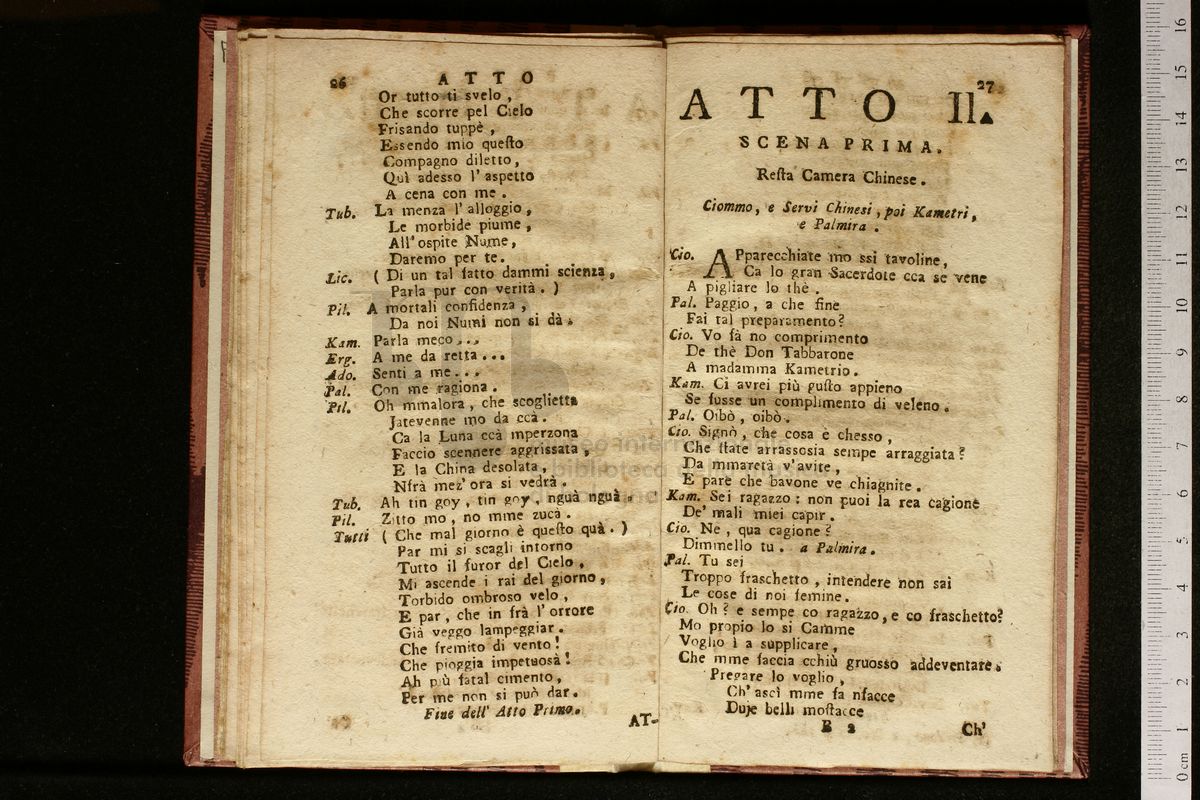 26 ATTO
Or tutto ti svelo,
Che scorre pel Cielo
Frisando tuppè,
Essendo mio questo
Compagno diletto,
Quì adesso l'aspetto
A cena con me.
Tub. La menza l'alloggio,
Le morbide piume,
All'ospite Nume,
Daremo per te.
Lic. (Di un tal fatto dammi scienza,
Parla pur con verità.)
Pil. A mortali confidenza,
Da noi Numi non si dà.
Kam. Parla meco...
Erg. A me da retta...
Ado. Senti a me...
Pal. Con me ragiona.
Pil. Oh mmalora, che scoglietta
Jatevenne mo da ccà.
Ca la Luna ccà mperzona
Faccio scennere aggrissata,
E la China desolata,
Nfrà mez'ora si vedrà.
Tub. Ah tin goy, tin goy, nguà nguà.
Pil. Zitto mo, no mme zucà.
Tutti (Che mal giorno è questo quà.)
Par mi si scagli intorno
Tutto il furor del Cielo,
Mi ascende i rai del giorno,
Torbido ombroso velo,
E par, che in frà l'orrore
Già veggo lampeggiar.
Che fremito di vento!
Che pioggia impetuosà!
Ah più fatal cimento,
Per me non si può dar.
Fine dell' Atto Primo.
AT-
27
ATTO II.
SCENA PRIMA.
Resta Camera Chinese.
Ciommo, e Servi Chinesi, poi Kametri,
e Palmira.
Cio. APparecchiate mo ssi tavoline,
Ca lo gran Sacerdote cca se vene
A pigliare lo thè.
Pal. Paggio, a che fine
Fai tal preparamento?
Cio. Vo fà no comprimento
De thè Don Tabbarone
A madamma Kametrio.
Kam. Ci avrei più gusto appieno
Se fusse un complimento di veleno.
Pal. Oibò, oibò.
Cio. Signò, che cosa è chesso,
Che state arrassosia sempe arraggiata?
Da mmaretà v'avite,
E pare che bavone ve chiagnite.
Kam. Sei ragazzo: non puoi la rea cagione
De' mali miei capir.
Cio. Ne, qua cagione?
Dimmello tu. a Palmira.
Pal. Tu sei
Troppo fraschetto, intendere non sai
Le cose di noi femine.
Cio. Oh? e sempe co ragazzo, e co fraschetto?
Mo propio lo si Camme
Voglio ì a supplicare,
Che mme faccia cchiù gruosso addeventare.
Pregare lo voglio,
Ch'ascì mme fa nfacce
Duje belli mostacce
B 2 Ch'